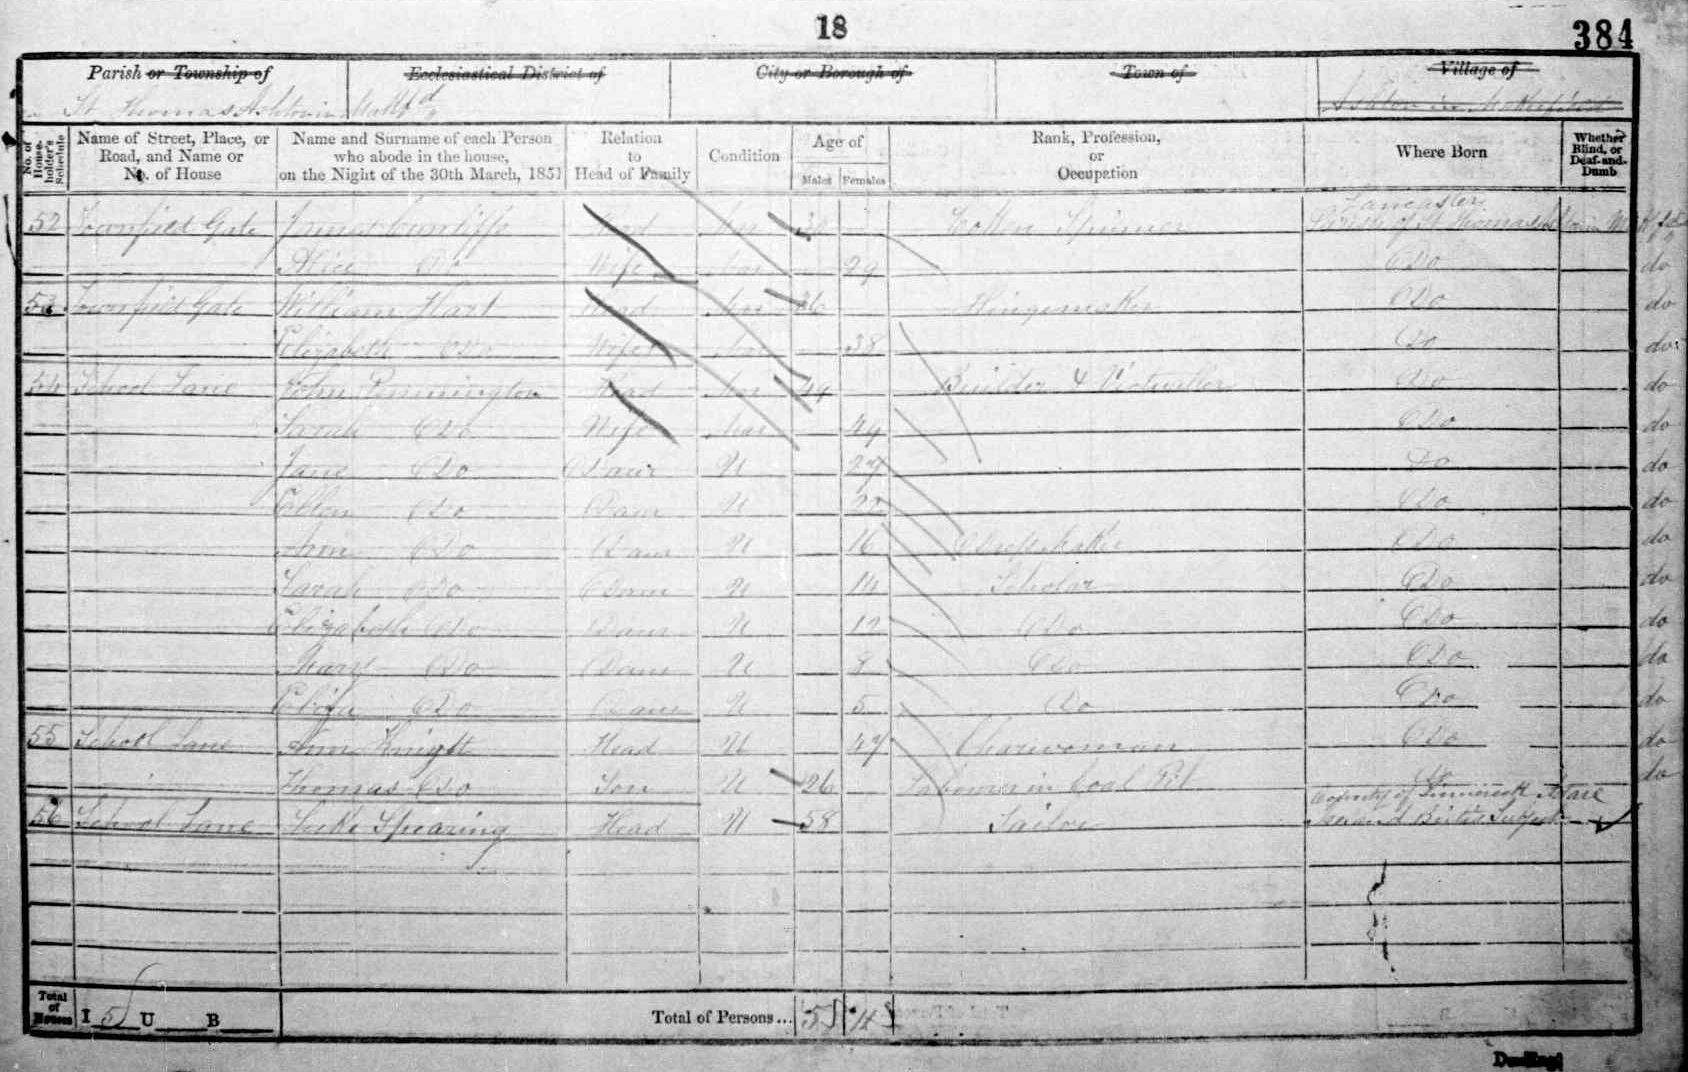 18
384
Parish or Township of
Ecclesiastical District of
City or Borough of
Town of
Village of
St Thomas Ashton in Makf'd
Ashton in Makerfield
No. of House-holder's Schedule
Name of Street, Place, or Road, and Name or No. of House
Name and Surname of each Person who abode in the house, on the Night of the 30th March, 1851
Relation to Head of Family
Condition
Age of
Males
Females
Rank, Profession, or Occupation
Where Born
Whether Blind, or Deaf-and-Dumb
Lancaster
52 Townfield Gate James Cunliffe Head Mar 30 Cotton Spinner Parish of St Thomas Ashton in
Alice Do Wife Mar 29 Do do
53 Townfield Gate William Hart Head Mar 36 Hingemaker Do do
Elizabeth Do Wife Mar 38 Do do
54 School Lane John Pennington Head Mar 49 Builder & Victualler Do do
Sarah Do Wife Mar 49 Do do
Jane Do Daur U 24 Do do
Ellen Do Daur U 22 Do do
Ann Do Daur U 16 Dressmaker Do do
Sarah Do Daur U 14 Scholar Do do
Elizabeth Do Daur U 12 Do Do do
Mary Do Daur U 9 Do Do do
Eliza Do Daur U 5 Do Do do
55 School Lane Ann Knight Head U 47 Charwoman Do do
Thomas Do Son U 26 Labourer in Coal Pit Do do
County of Limerick Adare
56 School Lane Luke Spearing Head U 58 Tailor Ireland British Subject
Total of Houses
I 5 U B
Total of Persons... 5 14